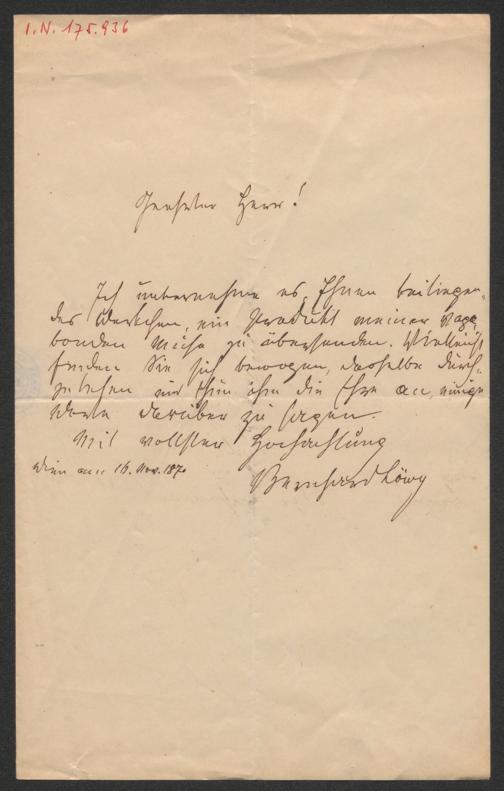 I.N. 175.936
Geehrter Herr!
Ich unternehme es, Ihnen beiliegen-
des Werkchen, ein Produkt meiner Vaga-
bonden Muse zu übersenden. Vielleicht
finden Sie sich bewogen, dasselbe durch-
zusehen und ihm die Ehre an, einige
Worte darüber zu sagen.
Mit vollster Hochachtung
Wien am 16. Nov. 1870
Bernhard Löwy